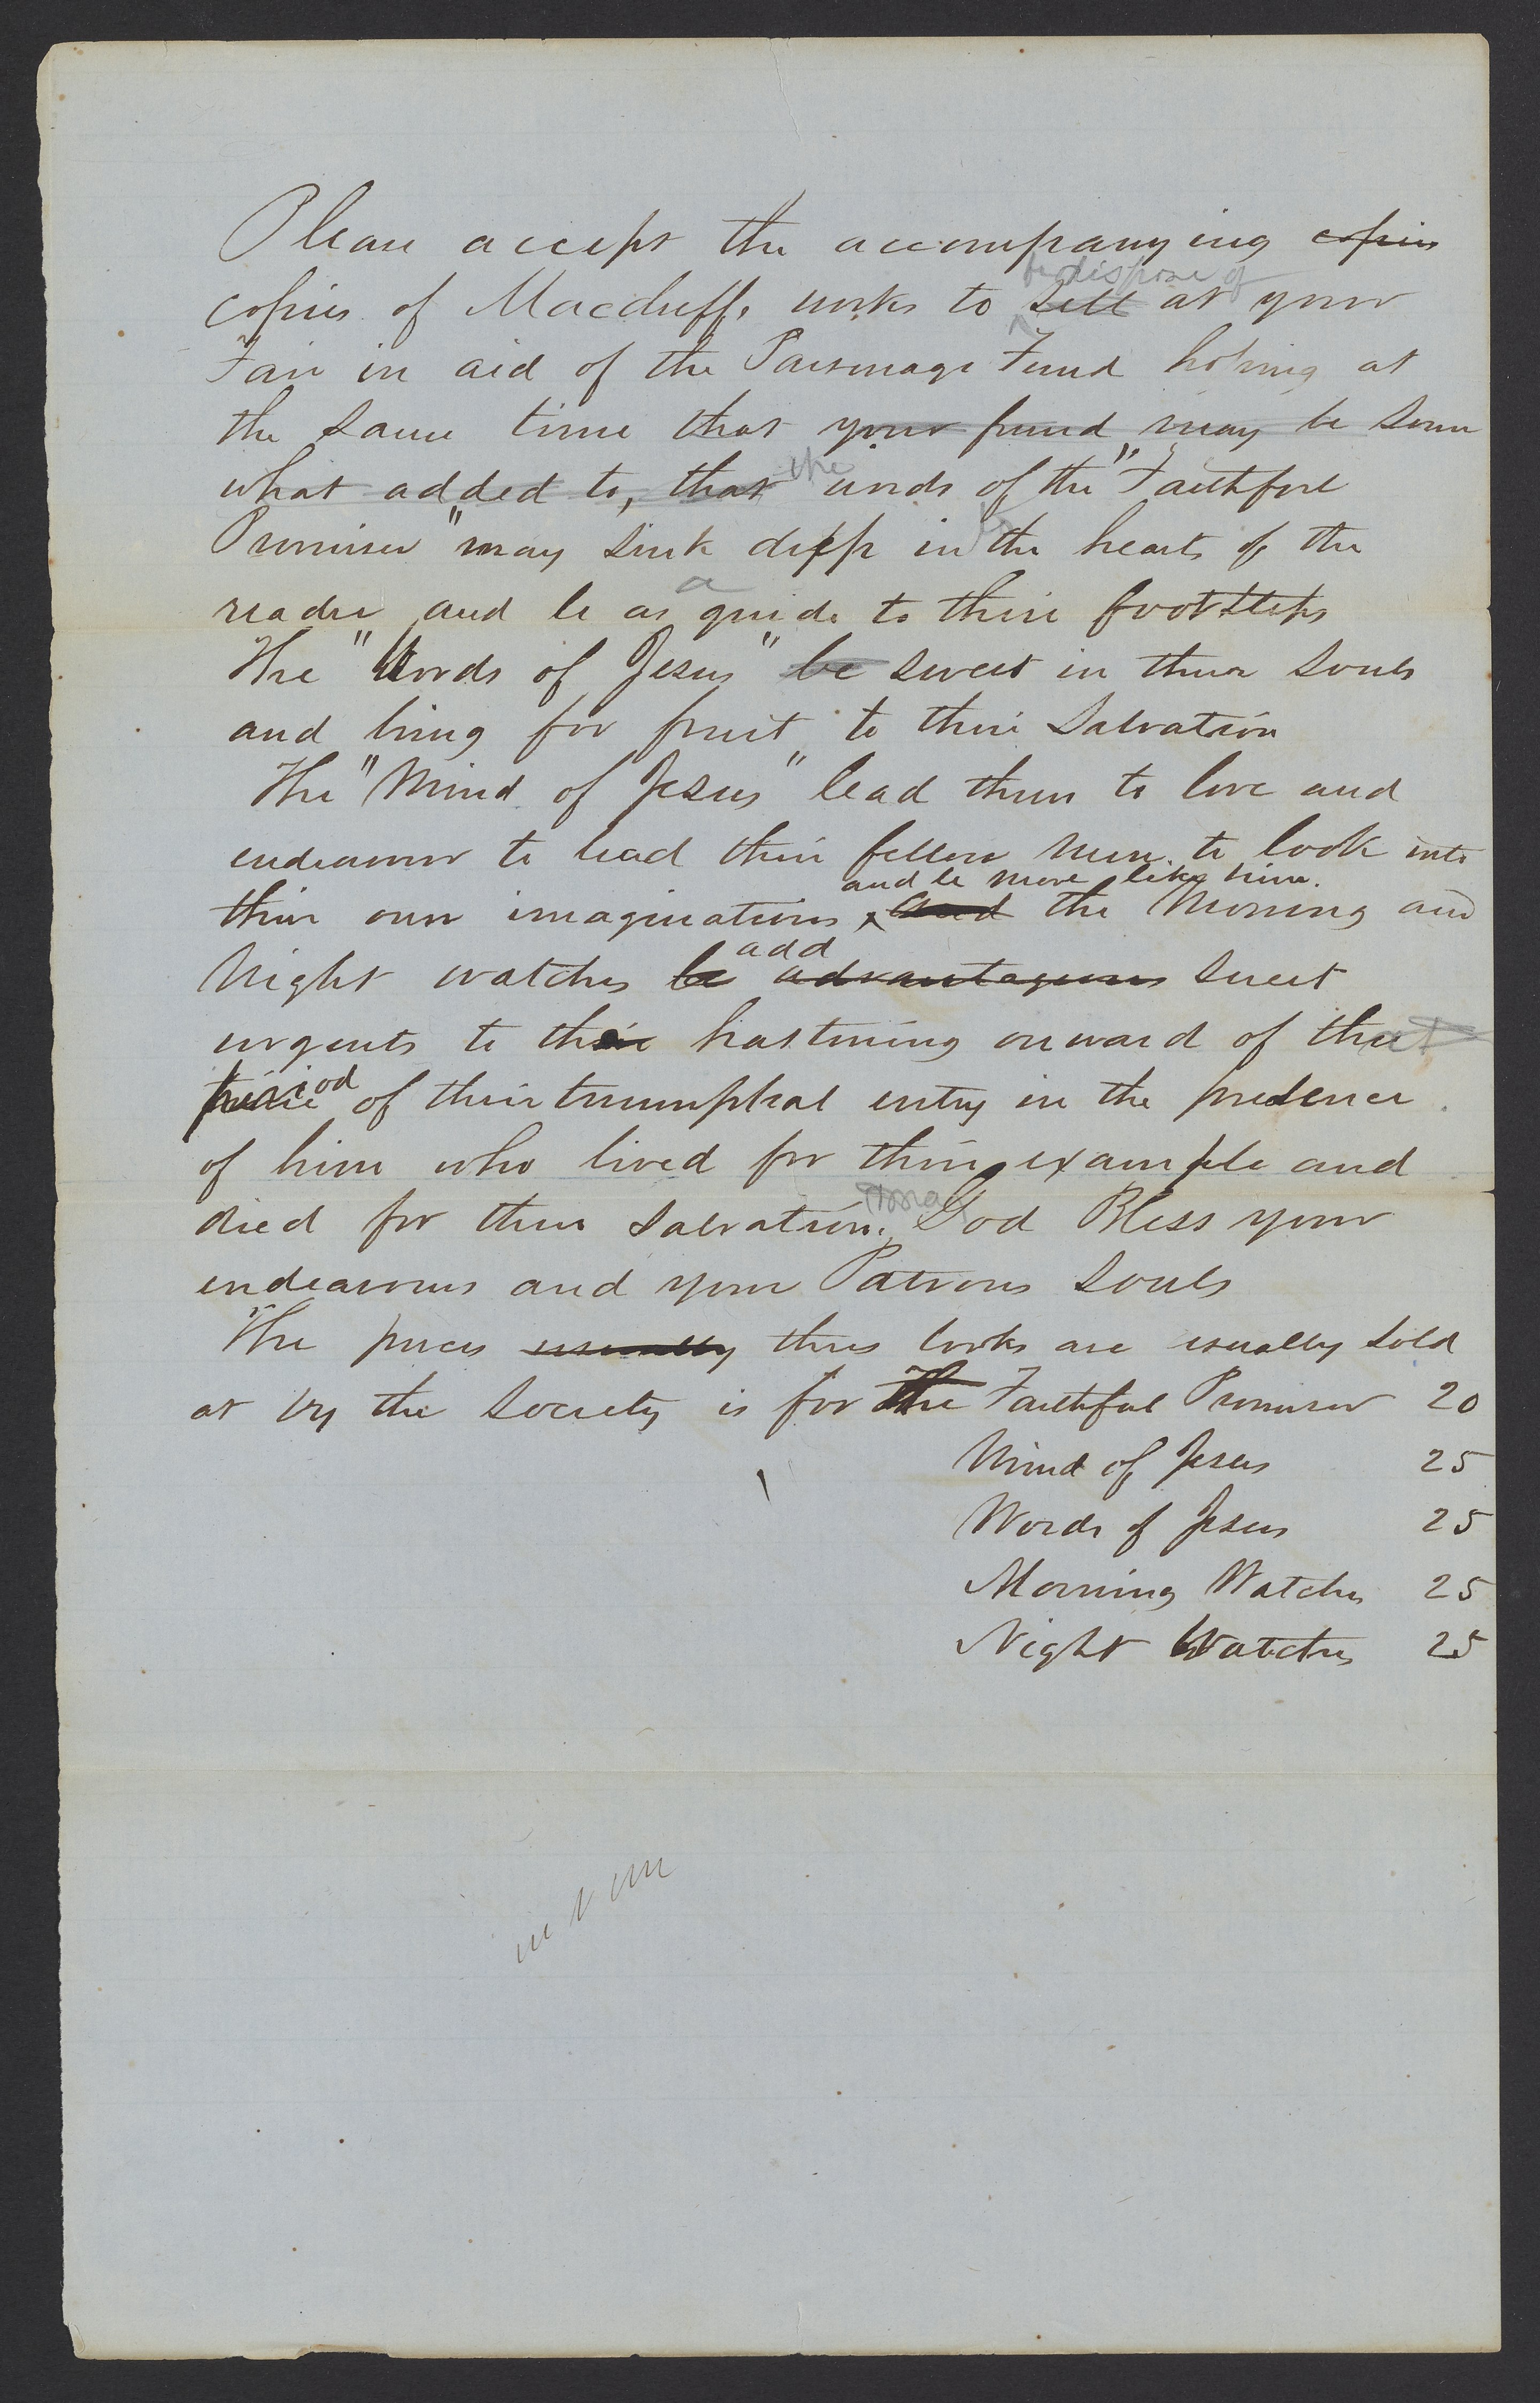 Please accept the accompanying copies
be dispose of
copies of Macduffs works to sell at your
Fair in aid of the Parsonage Fund hoping at
the same time that your fund may be some
what added to, that the words of the "Faithful
Promiser" may sink deep in the hearts of the
reader and be as a guide to their footsteps
The "Words of Jesus" be sweet in their souls
and bring for fruit to their Salvation
The "Mind of Jesus" lead them to love and
endeavour to lead their fellow men to look into
and be more like him.
their own imaginations and the Morning and
add
Night watches be advantageous sweet
urgents to their hastening onward of that
period of their triumphal entry in the presence
of him who lived for their example and
died for their salvation. God Bless your
endeavours and your Patrons Souls
The prices usually thes books are usually sold
at by the Society is for The Faithful Promiser 20
Mind of Jesus 25
Words of Jesus 25
Morning Watches 25
Night Watches 25